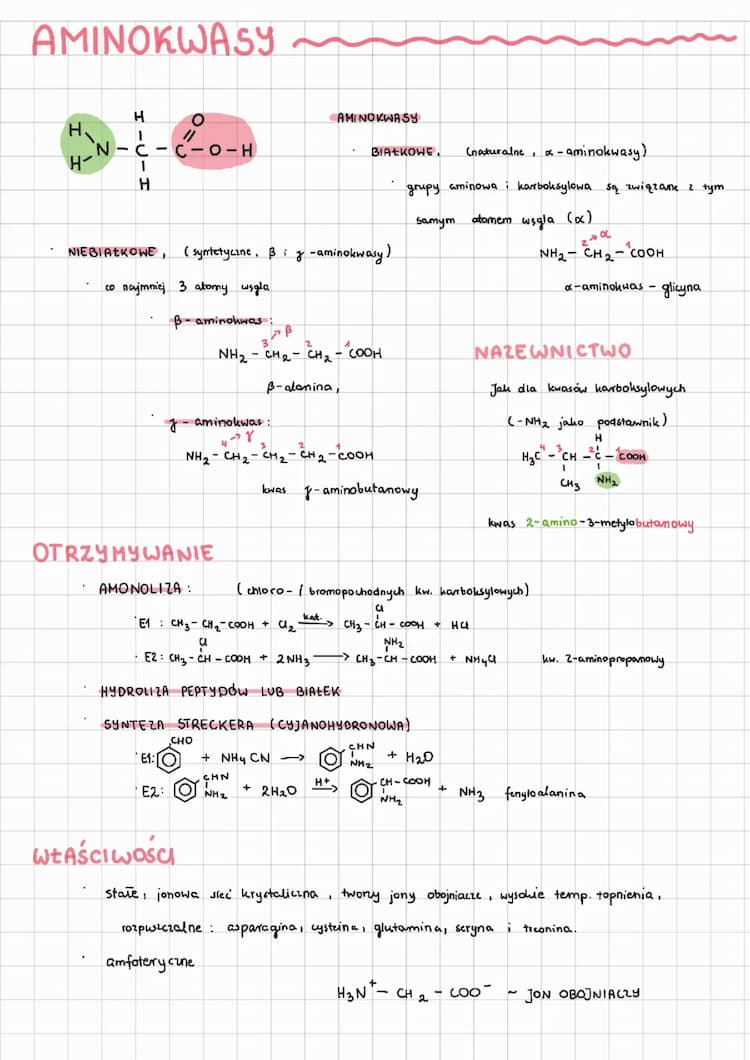 AMINOKWASY
H
H O
N - C - C - O - H
H
H
AMINOKWASY
· BIAŁKOWE, (naturalne, α-aminokwasy)
· grupy aminowa i karboksylowa są związane z tym
samym atomem węgla (α)
2→α 1
NH₂ - CH₂ - COOH
α-aminokwas - glicyna
· NIEBIAŁKOWE, (syntetyczne, β i γ-aminokwasy)
· co najmniej 3 atomy węgla
· β-aminokwas:
3→β 2 1
NH₂ - CH₂ - CH₂ - COOH
β-alanina,
· γ-aminokwas:
4→γ 3 2 1
NH₂ - CH₂ - CH₂ - CH₂ - COOH
kwas γ-aminobutanowy
NAZEWNICTWO
Jak dla kwasów karboksylowych
(-NH₂ jako podstawnik)
H
4 3 2 1
H₃C - CH - C - COOH
CH₃ NH₂
kwas 2-amino-3-metylobutanowy
OTRZYMYWANIE
· AMONOLIZA: (chloro- / bromopochodnych kw. karboksylowych)
Cl
· E1: CH₃ - CH₂ - COOH + Cl₂ kat.→ CH₃ - CH - COOH + HCl
Cl NH₂
· E2: CH₃ - CH - COOH + 2NH₃ → CH₃ - CH - COOH + NH₄Cl kw. 2-aminopropanowy
· HYDROLIZA PEPTYDÓW LUB BIAŁEK
· SYNTEZA STRECKERA (CYJANOHYDRONOWA)
CHO CHN
· E1: + NH₄CN → NH₂ + H₂O
CHN CH-COOH
· E2: NH₂ + 2H₂O H+→ NH₂ + NH₃ fenyloalanina
WŁAŚCIWOŚCI
· stałe, jonowa sieć krystaliczna, tworzy jony obojniacze, wysokie temp. topnienia,
rozpuszczalne: asparagina, cysteina, glutamina, seryna i treonina.
· amfoteryczne
H₃N⁺ - CH₂ - COO⁻ ~ JON OBOJNIACZY